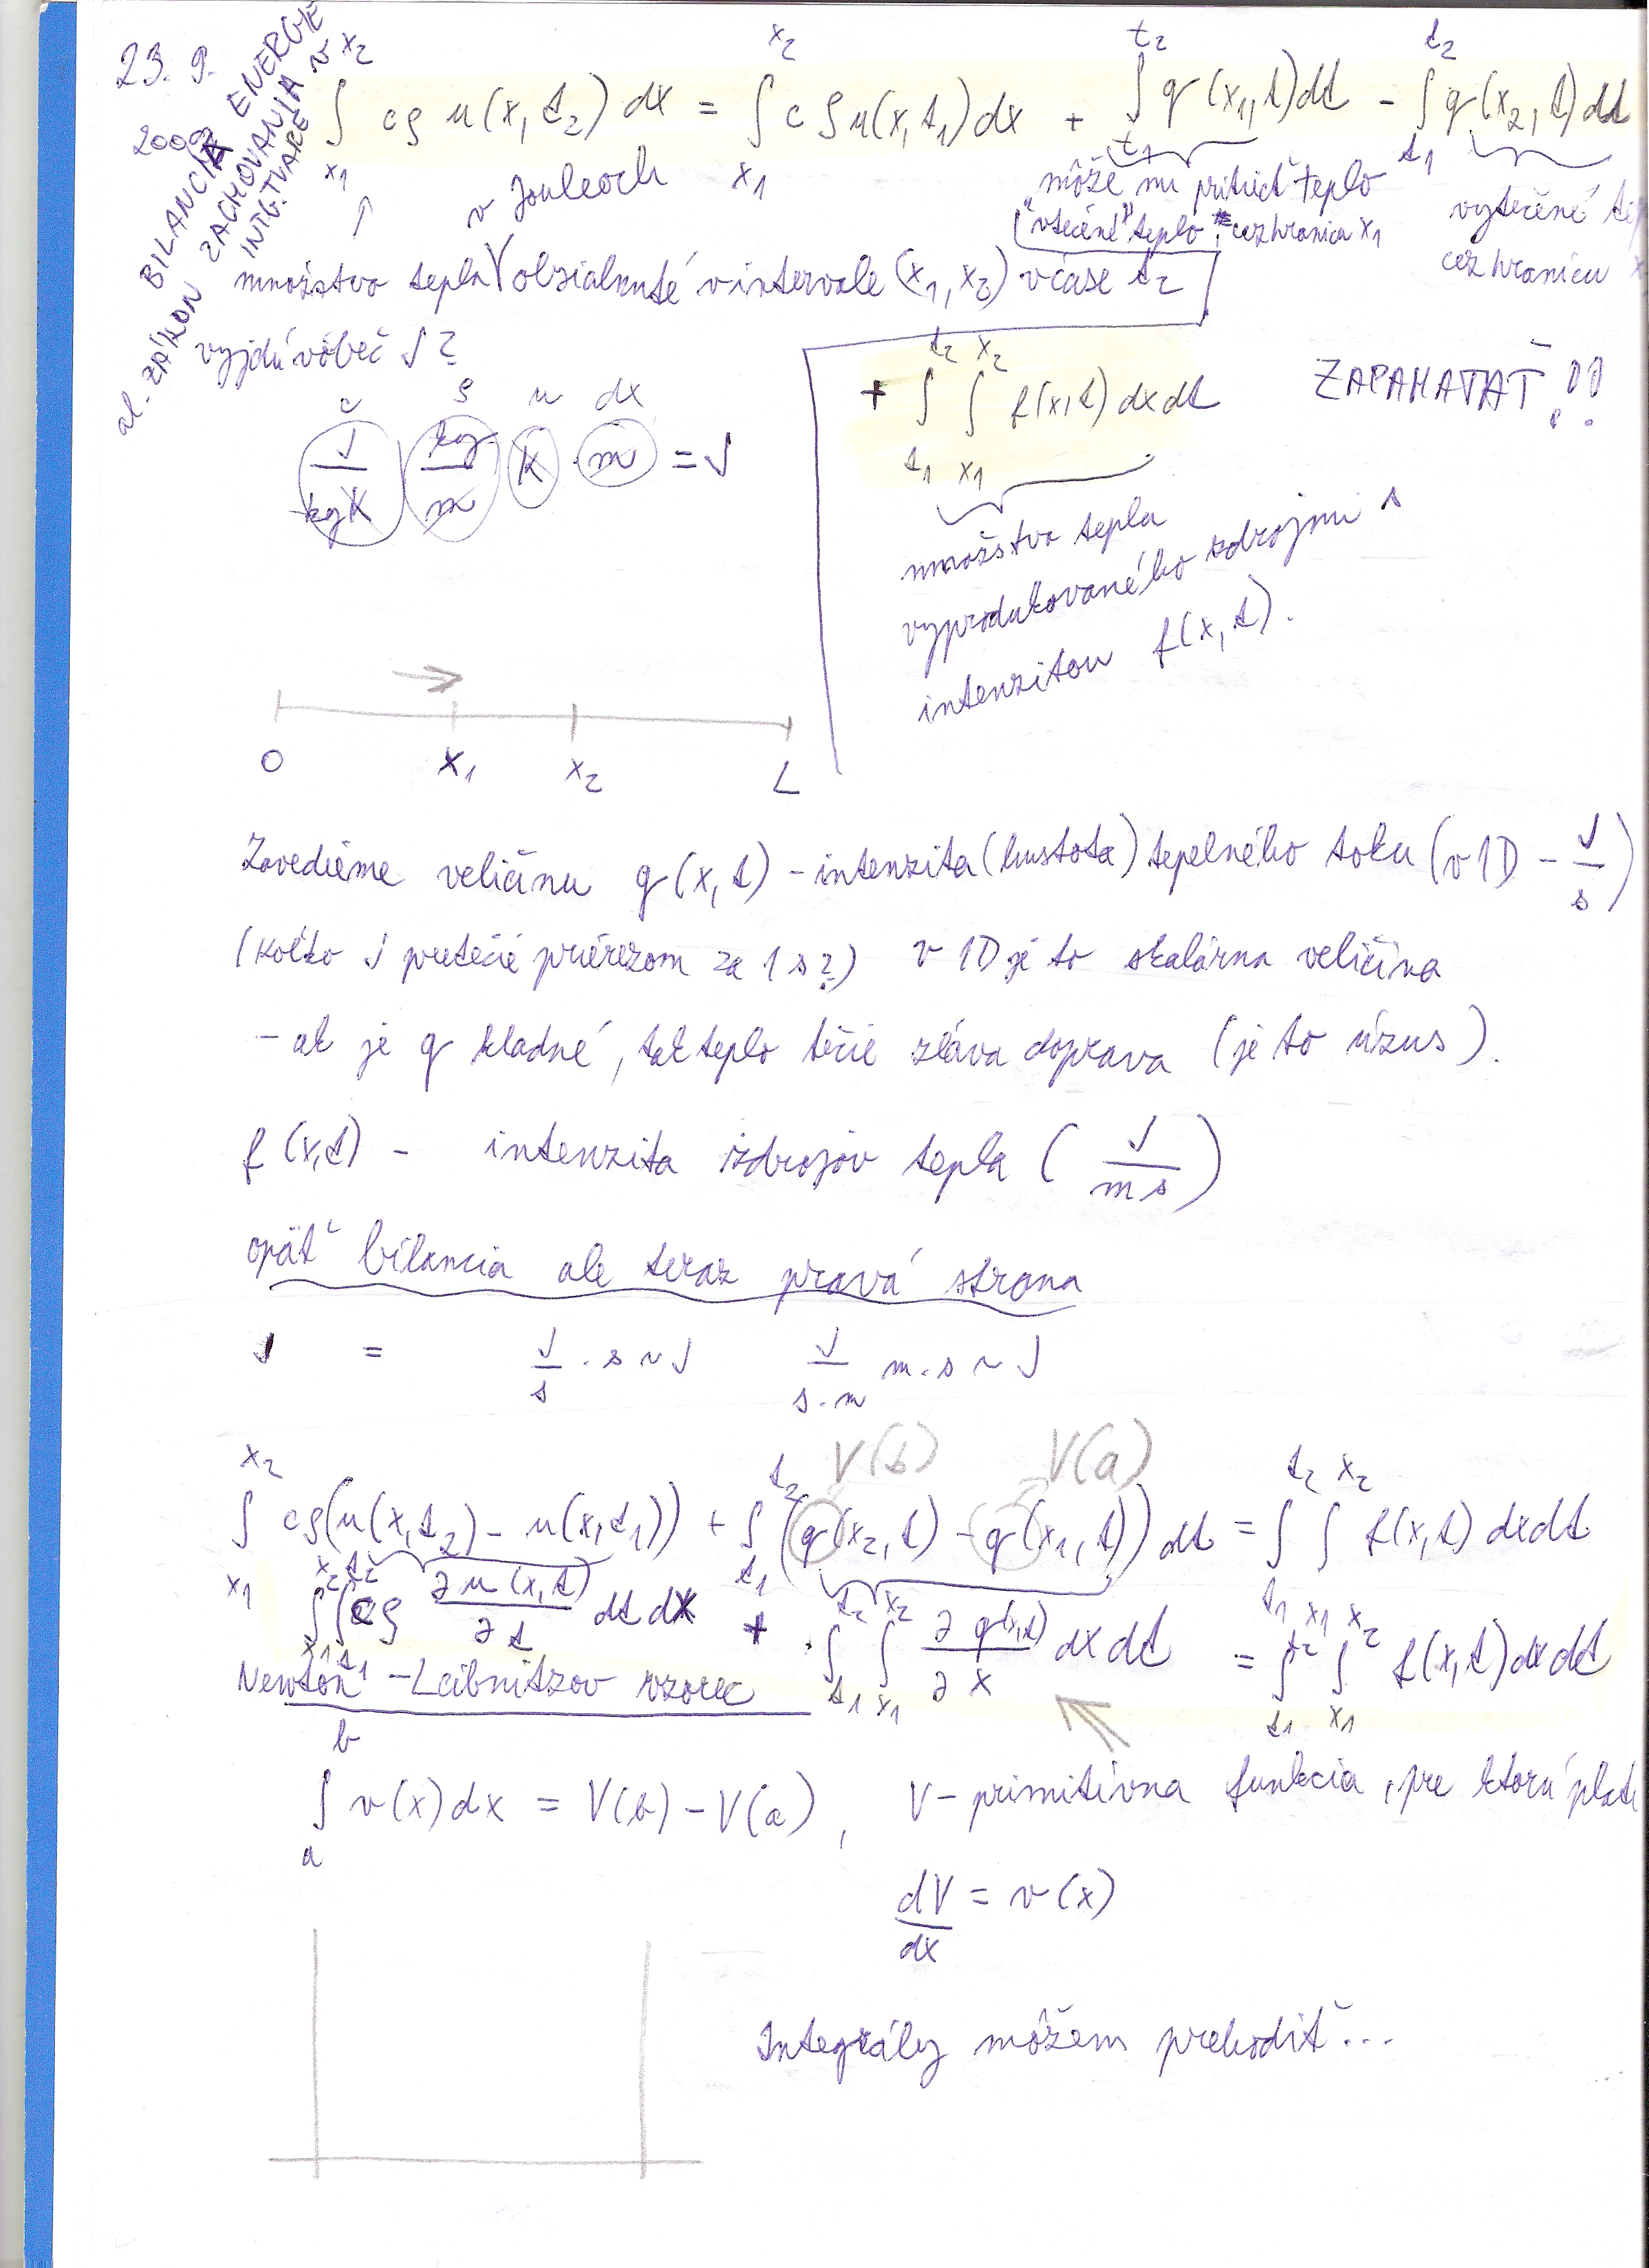 23. 9. 2009
BILANCIA ENERGIE
al. ZÁKON ZACHOVANIA v
INTG. TVARE
∫_{x₁}^{x₂} cρ u(x,t₂) dx = ∫_{x₁}^{x₂} cρu(x,t₁)dx + ∫_{t₁}^{t₂} q(x₁,t)dt - ∫_{t₁}^{t₂} q(x₂,t)dt
↑
v Jouleoch
môže mi pritiecť teplo
"vtečené" teplo cez hranicu x₁
vytečené
cez hranicu
množstvo tepla obsiahnuté v intervale (x₁, x₂) v čase t₂
vyjdú vôbec J?
c ρ u dx
J/kgK kg/m K · m = J
+ ∫_{t₁}^{t₂} ∫_{x₁}^{x₂} f(x,t) dxdt
ZAPAMATAŤ!!
množstvo tepla
vyprodukovaného zdrojmi s
intenzitou f(x,t).
0 x₁ x₂ L
Zavedieme veličinu q(x,t) - intenzita (hustota) tepelného toku (v 1D - J/s)
(koľko J pretečie prierezom za 1 s?) v 1D je to skalárna veličina
- ak je q kladné, tak teplo tečie zľava doprava (je to úzus).
f(x,t) - intenzita zdrojov tepla (J/ms)
opäť bilancia ale teraz pravá strana
J = J/s . s ~ J J/s.m m.s ~ J
V(b) V(a)
∫_{x₁}^{x₂} cρ(u(x,t₂) - u(x,t₁)) + ∫_{t₁}^{t₂} (q(x₂,t) - q(x₁,t)) dt = ∫_{t₁}^{t₂} ∫_{x₁}^{x₂} f(x,t) dxdt
∫_{x₁}^{x₂} ∫_{t₁}^{t₂} cρ ∂u(x,t)/∂t dt dx + ∫_{t₁}^{t₂} ∫_{x₁}^{x₂} ∂q(x,t)/∂x dxdt = ∫_{t₁}^{t₂} ∫_{x₁}^{x₂} f(x,t)dxdt
Newton - Leibnitzov vzorec
∫_{a}^{b} v(x)dx = V(b) - V(a), V - primitívna funkcia, pre ktorú platí
dV/dx = v(x)
Integrály môžem prehodiť...